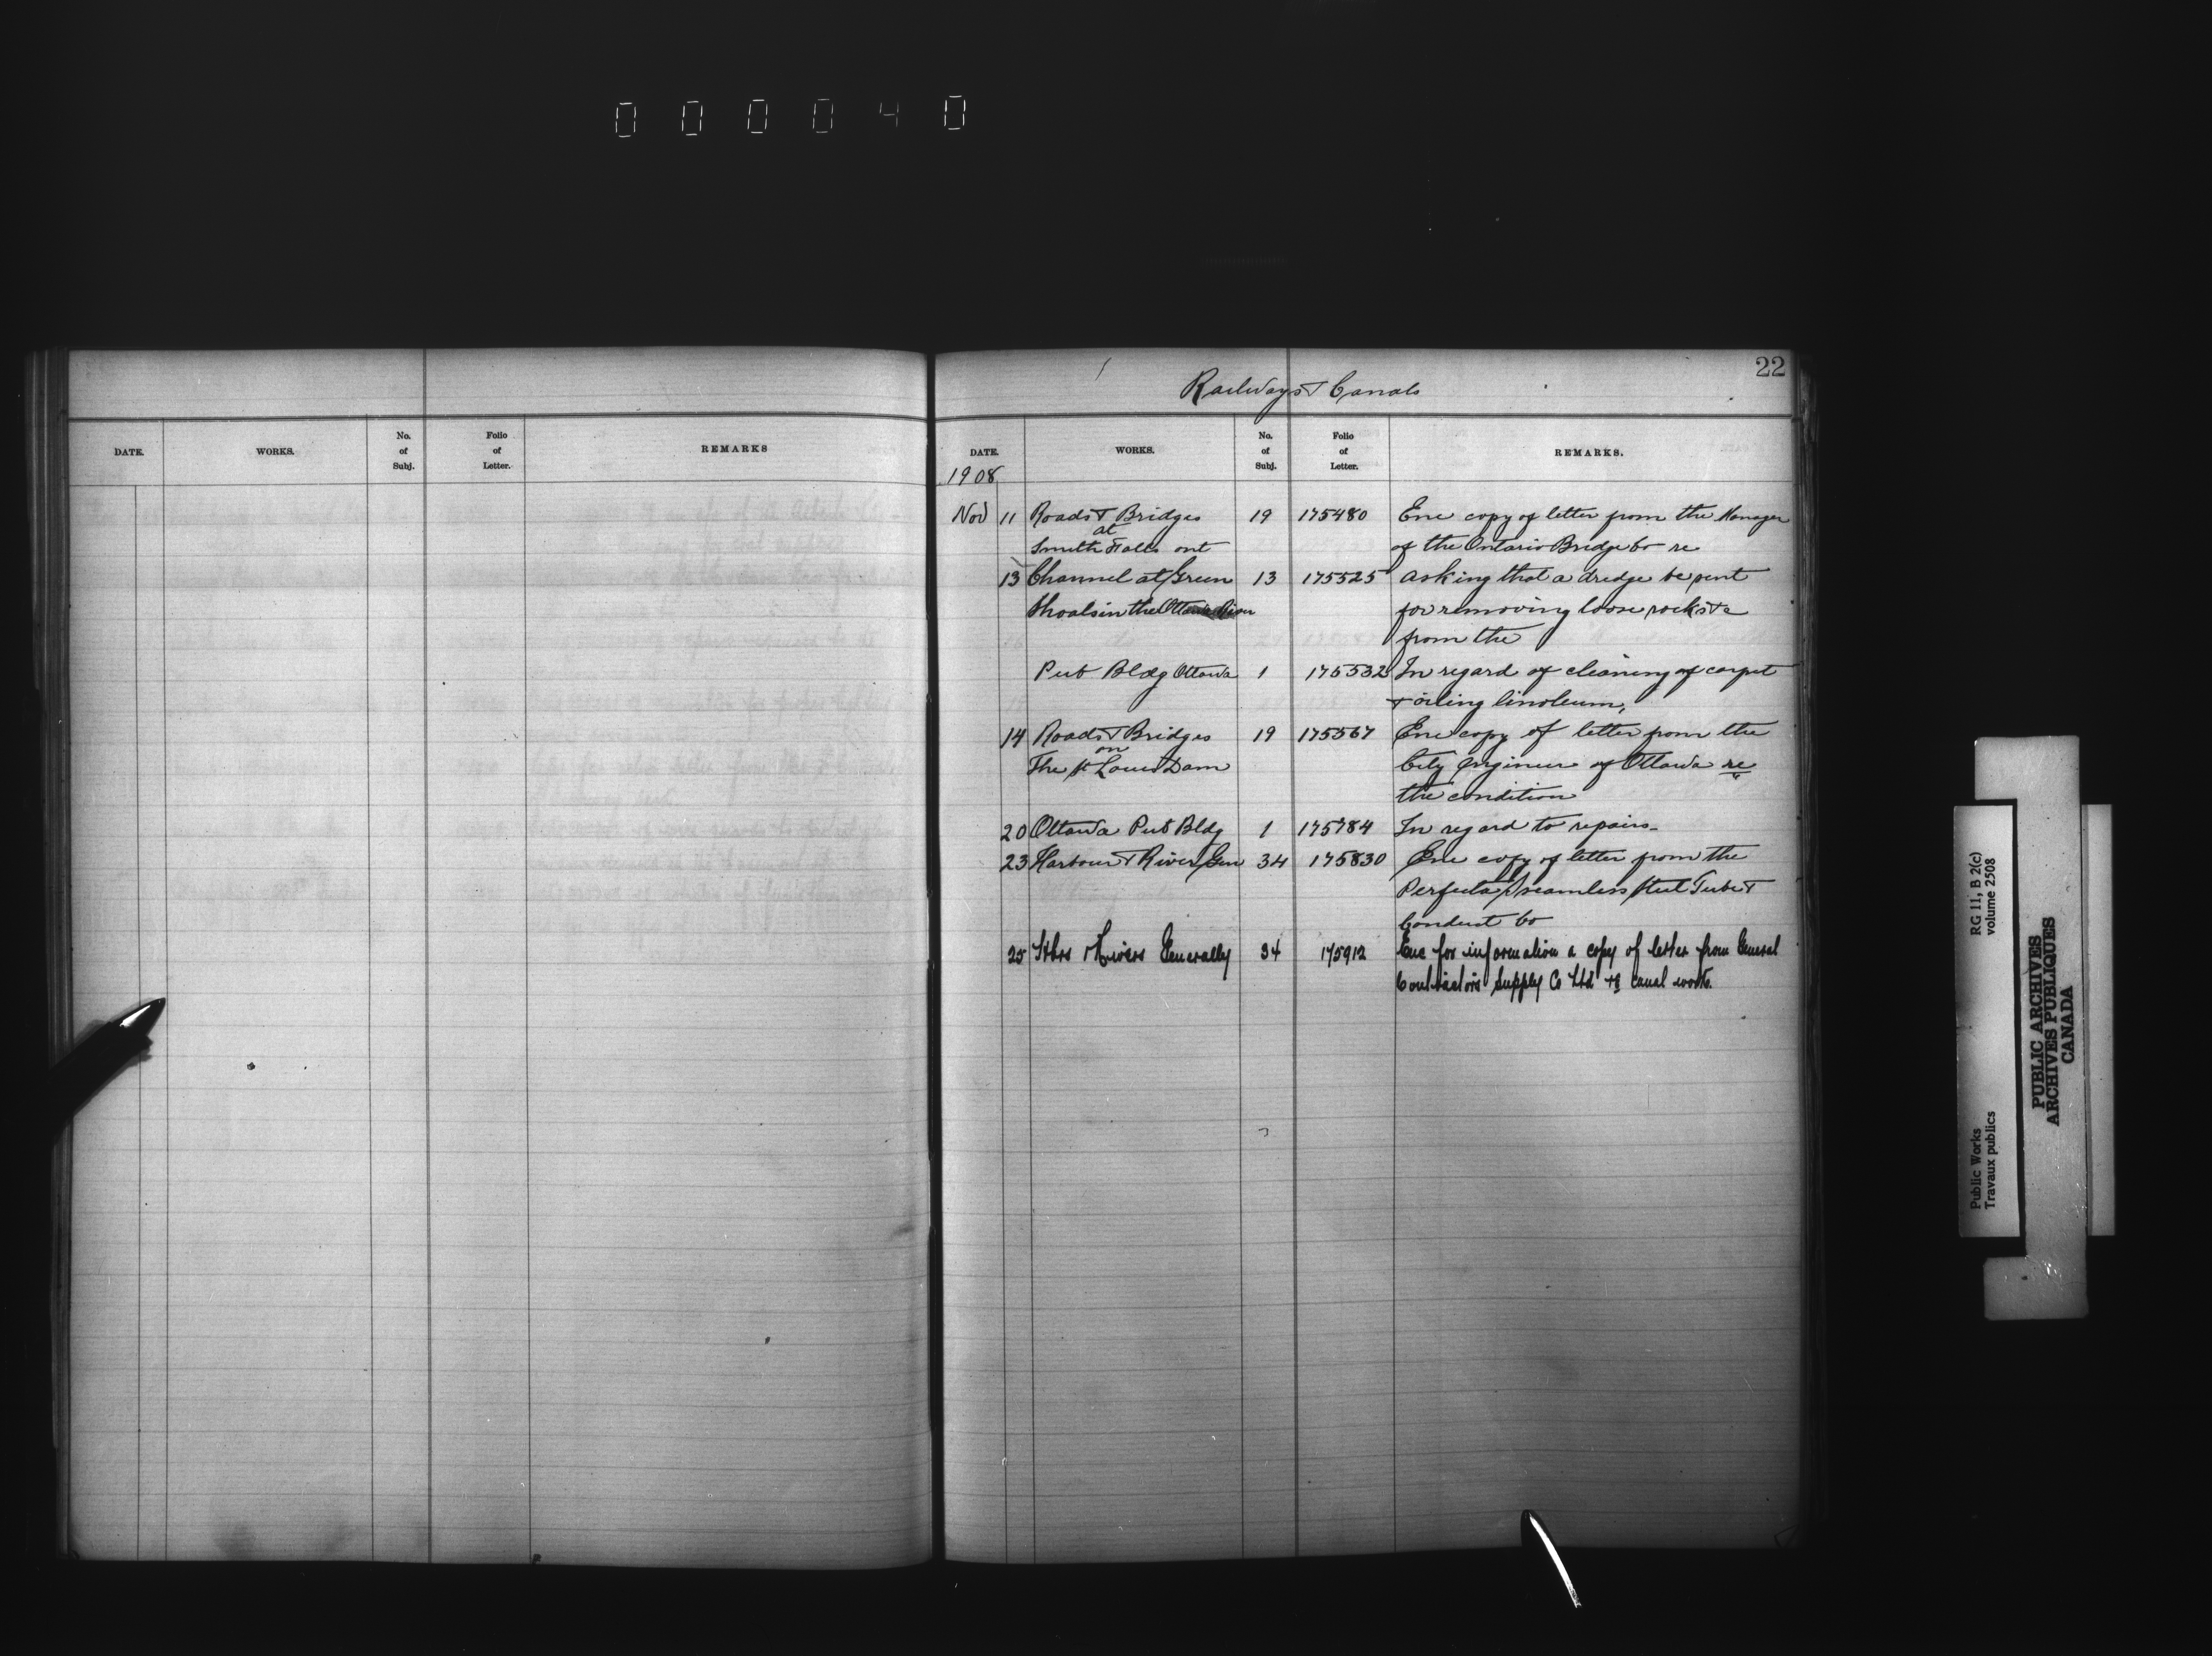 000040
22
Railways & Canals
DATE. WORKS. No. of Subj. Folio of Letter. REMARKS
DATE. WORKS. No. of Subj. Folio of Letter. REMARKS.
1908
Nov 11 Roads & Bridges 19 175480 Enc copy of letter from the Manager
at
Smith Falls ont of the Ontario Bridge Co re
13 Channel at Green 13 175525 asking that a dredge be sent
Shoals in the Ottawa River for removing loose rocks &c
from the
Pub Bldg Ottawa 1 175532 In regard of cleaning of carpet
& oiling linoleum,
14 Roads & Bridges 19 175567 Enc copy of letter from the
on
The St Louis Dam City Engineer of Ottawa re
the condition
20 Ottawa Pub Bldg 1 175784 In regard to repairs.
23 Harbour & River Gen 34 175830 Enc copy of letter from the
seamless steel Tube &
Conduct Co
25 Hbrs & Rivers Generally 34 175912 Enc for information a copy of letter from General
Contractors Supply Co Ltd re canal work.
Public Works RG 11, B 2(c)
Travaux publics volume 2508
PUBLIC ARCHIVES
ARCHIVES PUBLIQUES
CANADA